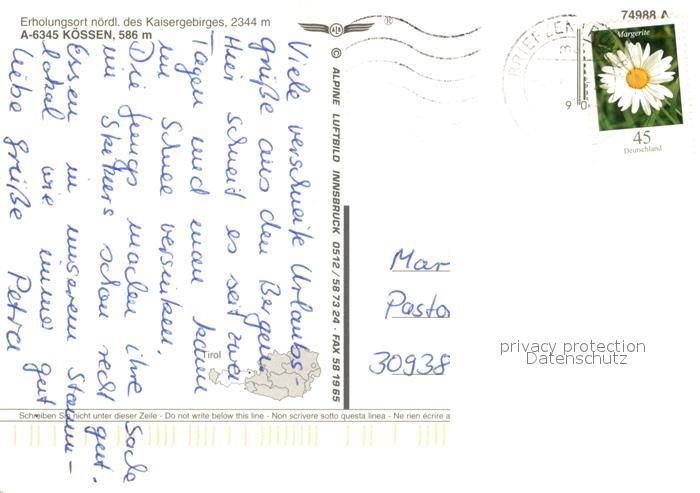 Erholungsort nördl. des Kaisergebirges, 2344 m
A-6345 KÖSSEN, 586 m
Viele verschneite Urlaubs-
grüße aus den Bergen.
Hier schneit es seit zwei
Tagen und man kann
im Schnee versinken.
Die Jungs machen ihre Sache
im Skikurs schon recht gut.
Essen in unserem Stamm-
lokal wie immer gut.
Liebe Grüße Petra
© ALPINE LUFTBILD INNSBRUCK 0512/58 73 24 · FAX 58 19 65
74988 A
BRIEFZEN
Margerite
45
Deutschland
Mar
Pasto
30938
privacy protection
Datenschutz
Tirol
Schreiben Sie nicht unter dieser Zeile - Do not write below this line - Non scrivere sotto questa linea - Ne rien écrire a